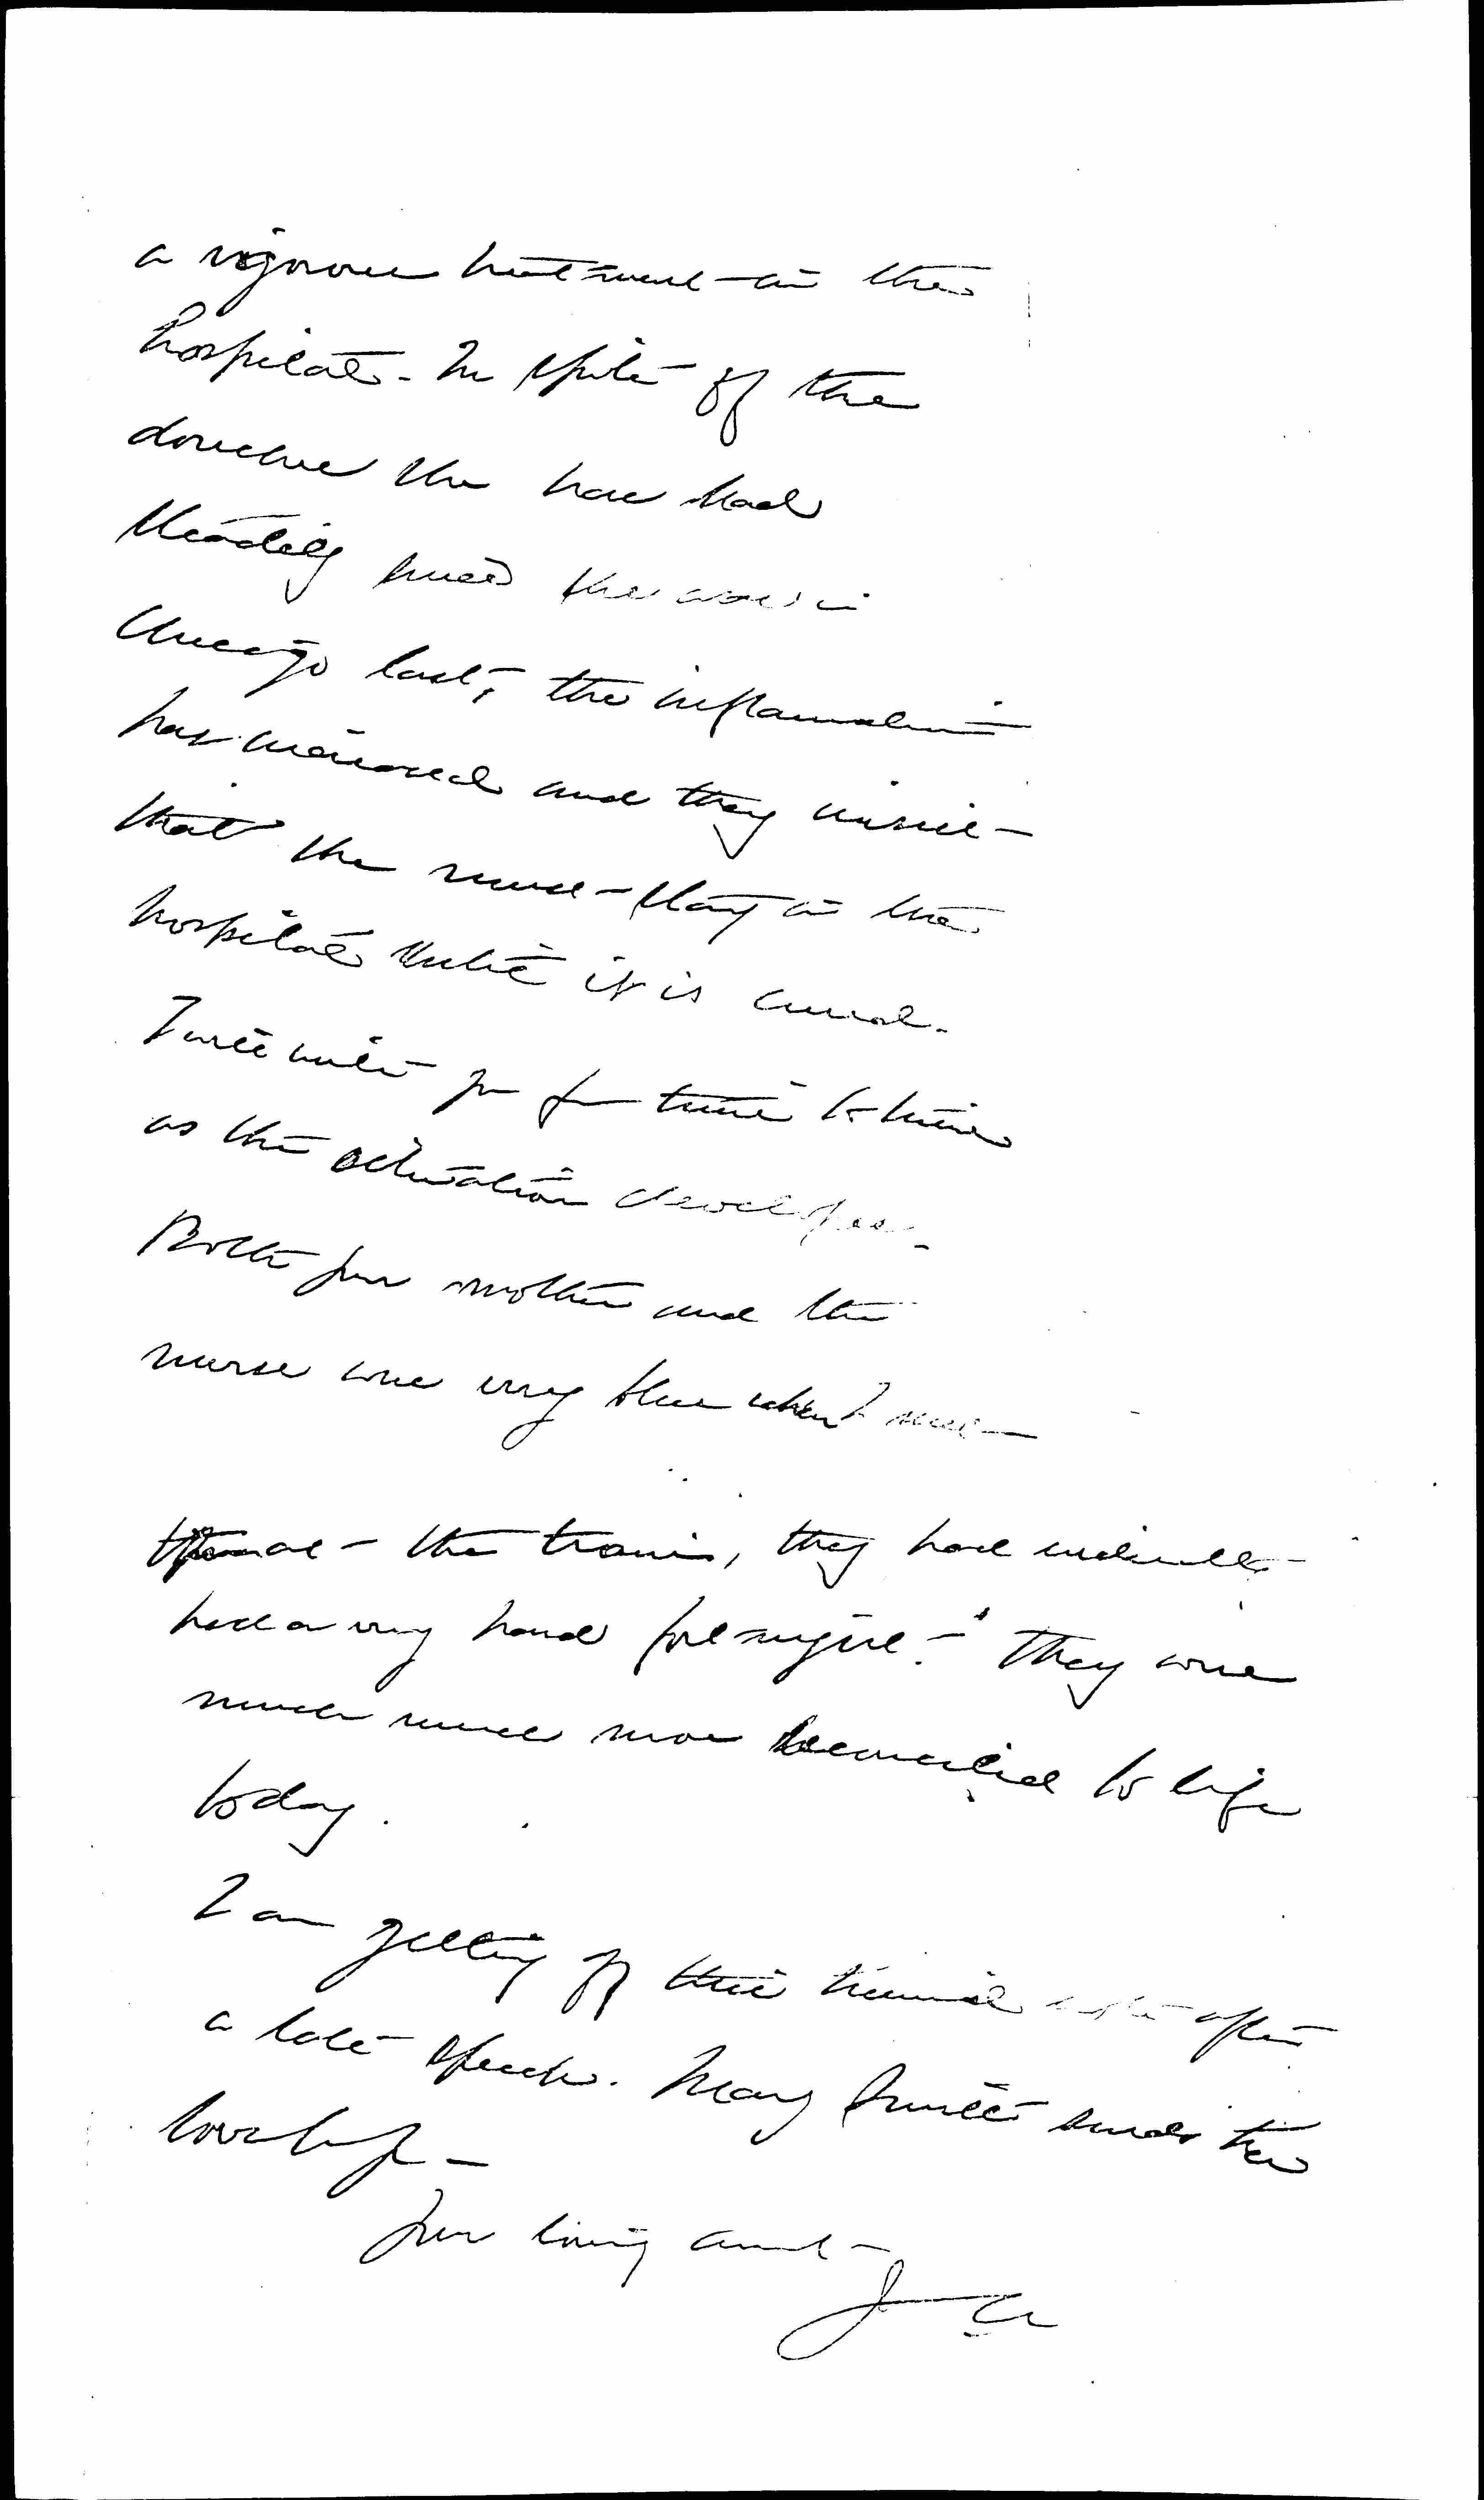 a vigorous treatment in the
hospital. In spite of the
douches she has had
steadily since she was in
Chicago last, the inflammation
has increased and they insist
that she must stay in the
hospital until it is cured.
I will write you from time to time
as the situation develops.
Both your mother and the
nurse were very blue when I met
the train, they had evidently
had a very hard fortnight. They were
much much more reconciled to life
today.
I am getting off this hurried note after
a late speech. Mary Smith sends her
love
Your loving aunt
J A